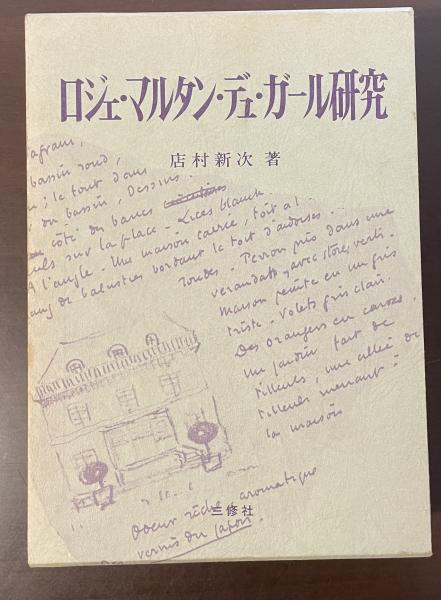 ロジェ・マルタン・デュ・ガール研究
店村新次 著
bassin rond,
; le tout dans
du bassin, Dessins.
côté des bancs
sur la place - Lices blanch
A l'angle - Une maison carrée, toit à l
de balustres bordant le toit d'ardoises
rondes - Perron pris dans une
verandah, avec store, verti-
maison peinte en un gris
triste - Volets gris clair.
Des orangers en caisses.
un jardin fait de
tilleuls, une allée de
tilleuls menant à
la maison
Odeur aromatique
vernis du Japon.
三修社